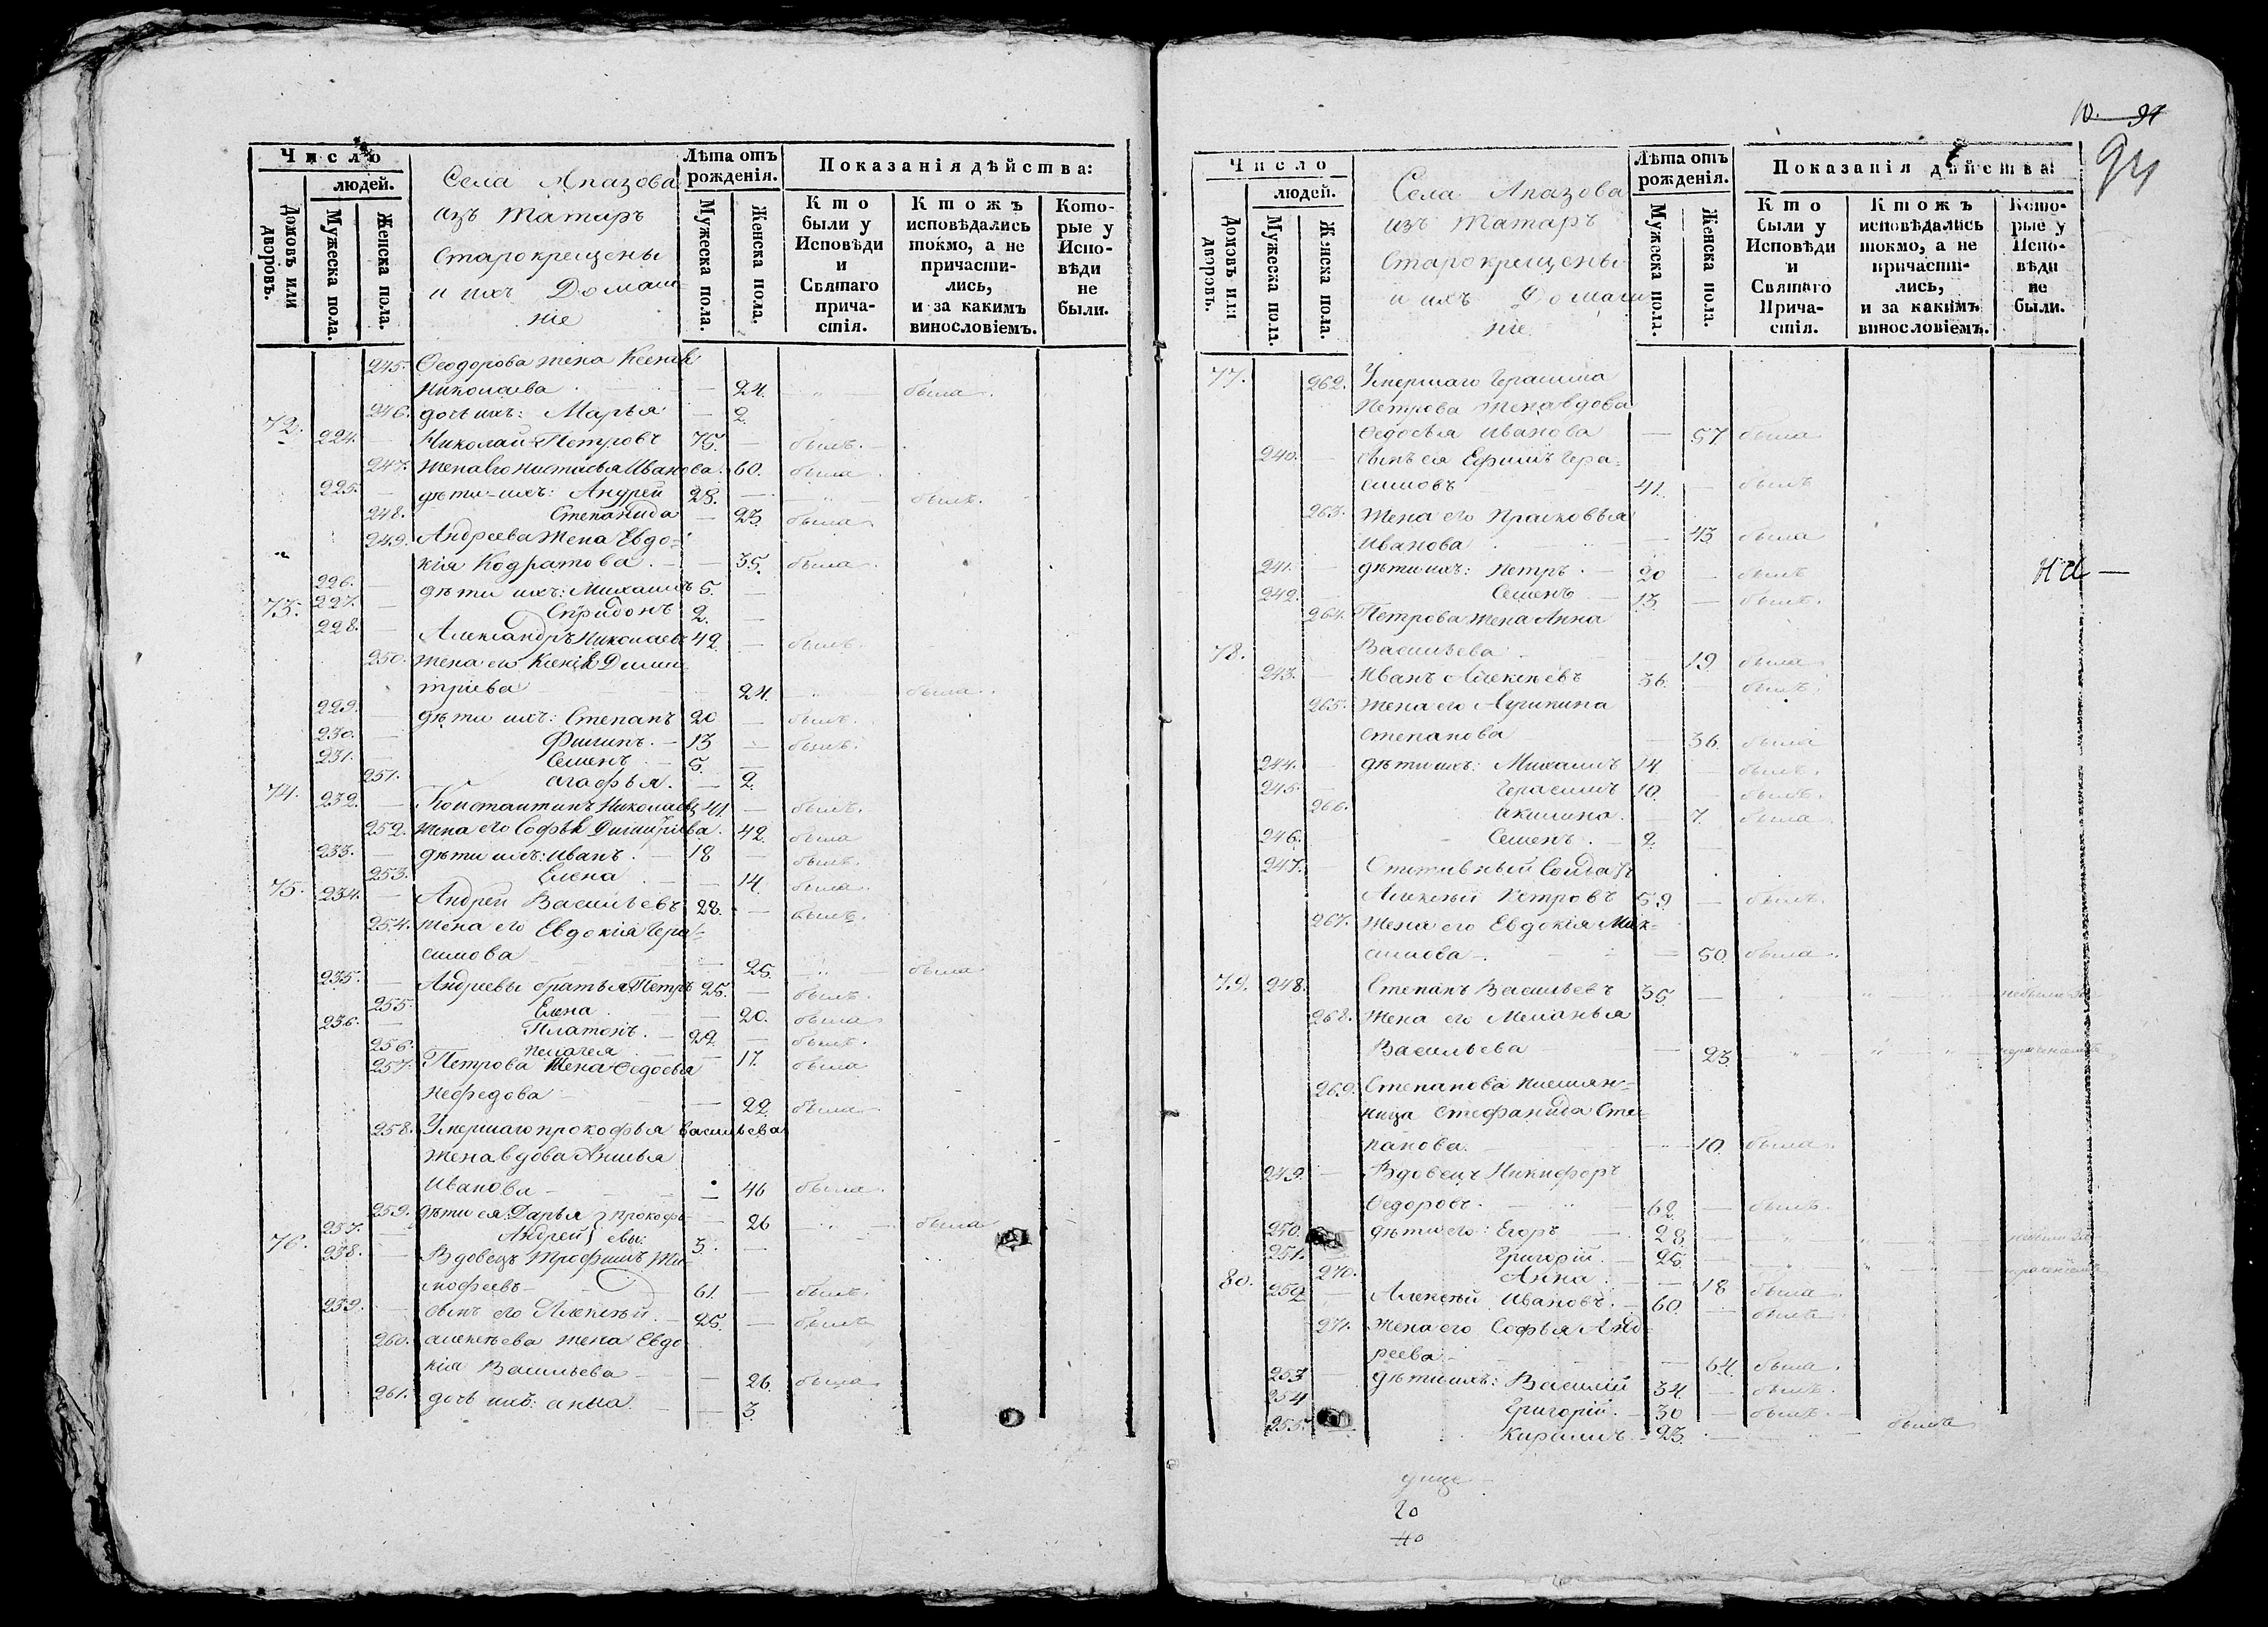 Число
людей.
Домовъ или дворовъ.
Мужеска пола.
Женска пола.
Села Апазова
изъ татаръ
Старокрещены
и ихъ Домаш
ніе
Лѣта отъ рожденія.
Мужеска пола.
Женска пола.
Показанія дѣйства:
Кто были у Исповѣди и Святаго причастія.
Ктожъ исповѣдались токмо, а не причастились, и за какимъ винословіемъ.
Которые у Исповѣди не были.
245. Ѳеодорова жена Ксенія
Николаева 24. — была.
246. дочь ихъ: Марья — 2.
72. 224. — Николай Петровъ 75. — былъ.
247. жена его Настасья Иванова. 60. была.
225. — дѣти ихъ: Андрей 28. — былъ.
248. Степанида — 23 была
249. Андреева жена Евдо-
кія Кодратова. — 35. была.
226. — дѣти ихъ: Михаилъ 5. —
73. 227. — Спиридонъ 2. —
228. — Александръ Николаевъ 42 — былъ.
250. жена его Ксенія Дими
тріева 24. была.
229. — дѣти ихъ: Степанъ 20 — былъ.
230. — Филипъ. — 13 — былъ.
231. — Семенъ — 5. —
251. Агафья. — 2.
74. 232. — Константинъ Николаевъ 41 — былъ.
252. жена его Софья Димитріева. 42. была
233. — дѣти ихъ: Иванъ. — 18 — былъ.
253. Елена — 14. была.
75. 234. — Андрей Васильевъ 28. — былъ.
254. жена его Евдокія Гера-
симова — 25. — была
235. — Андреевы братья Петръ 25. — былъ.
255. Елена — 20. была
236. — Платонъ. — 22. — былъ.
256. Пелагея — 17. была
257. Петрова жена Ѳедосья
Нефедова — 22. была
258. Умершаго прокофья Васильева
жена вдова Анисья
Иванова — 46 была.
259. дѣти ея: Дарья } Прокофь- — 26 — была
237. — Андрей } евы: 3. —
76. 238. — Вдовецъ Трофимъ Ти-
мофеевъ — 61. — былъ.
239. — сынъ его Алексѣй. — 25. — былъ
260. алексѣева жена Евдо
кія Васильева — 26. была
261. дочь ихъ: анна. — 3.
10. 91
Число
людей.
Домовъ или дворовъ.
Мужеска пола.
Женска пола.
Села Апазова
изъ татаръ
Старокрещены
и ихъ Домаш
ніе
Лѣта отъ рожденія.
Мужеска пола.
Женска пола.
Показанія дѣйства:
Кто были у Исповѣди и Святаго Причастія.
Ктожъ исповѣдались токмо, а не причастились, и за какимъ винословіемъ.
Которые у Исповѣди не были.
77. 262. Умершаго Герасима
Петрова жена вдова
Ѳедосья Иванова — 57 была
240. — сынъ ея Ефимъ Гера-
симовъ 41. — былъ
263. жена его Прасковья
Иванова — 43 была
241. — дѣти ихъ: Петръ. — 20 — былъ
242. — Семенъ — 13. — былъ.
264. Петрова жена Анна
Васильева — 19. была
78. 243. — Иванъ Алексѣевъ 36. — былъ.
265. жена его Лукина
Степанова — 36. была
244. — дѣти ихъ: Михаилъ 14. — былъ.
245. — Герасимъ 10. — былъ.
266. Акилина. — 7. была
246. — Семенъ. — 2.
247. — Солдатъ
Алексѣй Петровъ 59. — былъ.
267. жена его Евдокія Мак-
симова — 50. была.
79. 248. Степанъ Васильевъ 35. —
268. жена его Меланья
Васильева — 23.
269. Степанова племян-
ница Стефанида Сте-
панова. — 10. была.
249. — Вдовецъ Никифоръ
Ѳедоровъ. — 62. — былъ.
250. — дѣти его: Егоръ — 28
251. — Григорій. — 25
270. Анна. — 18 была.
80. 252 — Алексѣй Ивановъ. — 60. — былъ.
271. жена его Софья Анд-
реева. — 64. была.
253 — дѣти ихъ: Василій 34. — былъ.
254 Григорій. — 30 — былъ.
255. — Кирилъ. — 23. — былъ
20
40